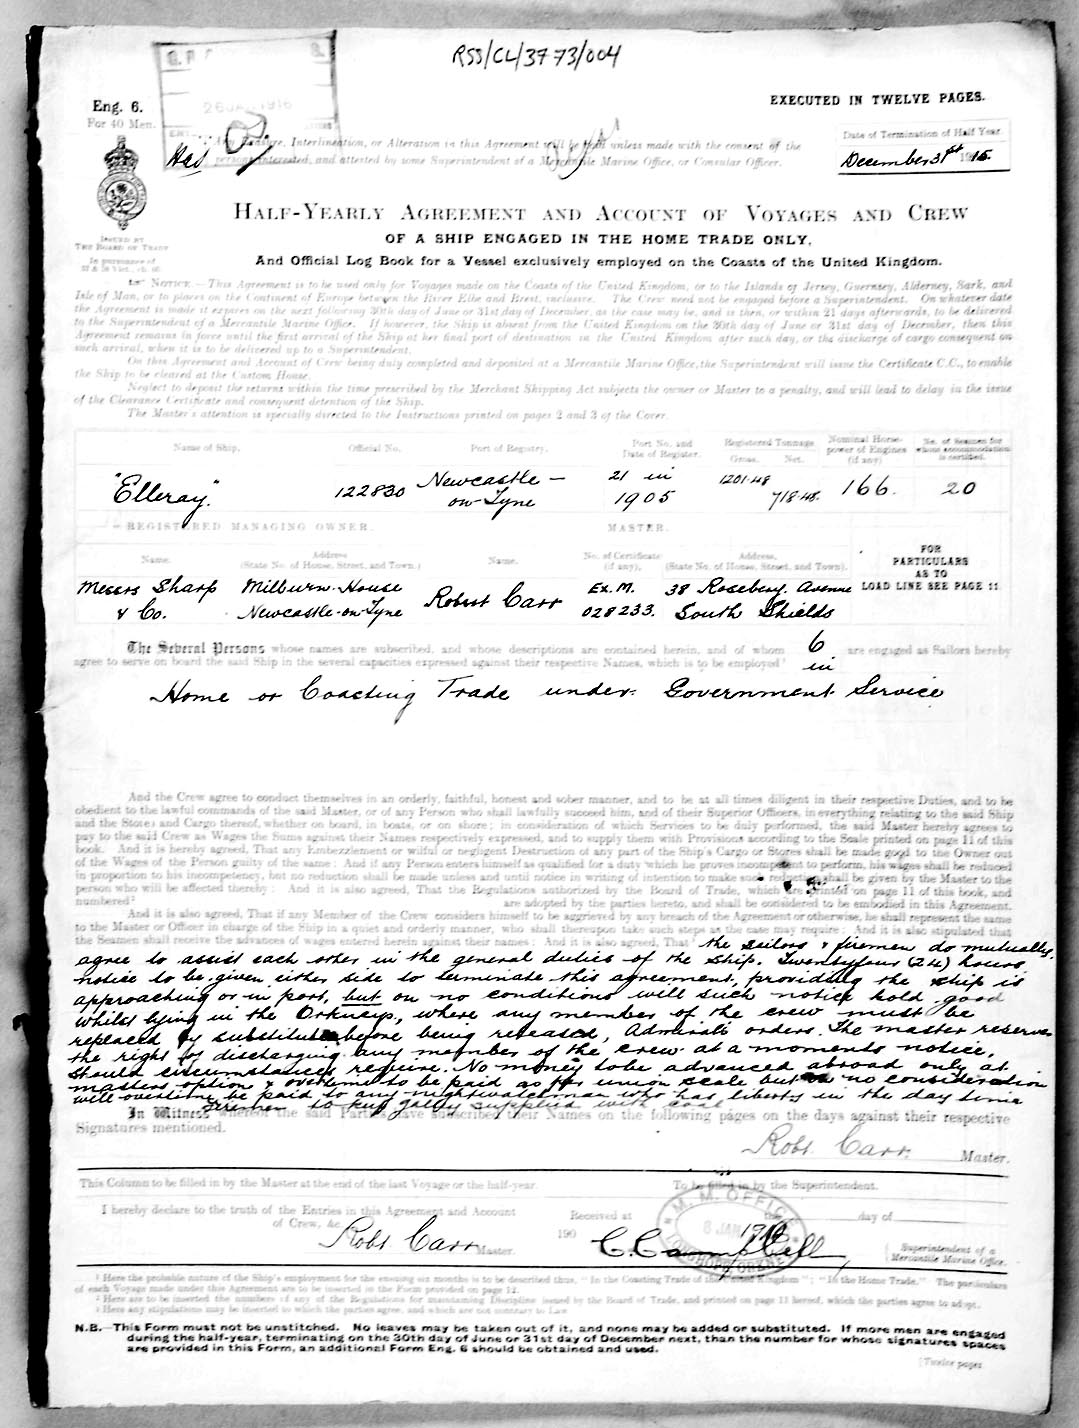 RSS/CL/3773/004
Eng. 6.
For 40 Men.
EXECUTED IN TWELVE PAGES.
26 JAN 1916
Any Erasure, Interlineation, or Alteration in this Agreement will be void unless made with the consent of the
persons interested, and attested by some Superintendent of a Mercantile Marine Office, or Consular Officer.
Date of Termination of Half Year.
December 31st 1915.
ISSUED BY
THE BOARD OF TRADE
In pursuance of
HALF-YEARLY AGREEMENT AND ACCOUNT OF VOYAGES AND CREW
OF A SHIP ENGAGED IN THE HOME TRADE ONLY,
And Official Log Book for a Vessel exclusively employed on the Coasts of the United Kingdom.
NOTICE.—This Agreement is to be used only for Voyages made on the Coasts of the United Kingdom, or to the Islands of Jersey, Guernsey, Alderney, Sark, and
Isle of Man, or to places on the Continent of Europe between the River Elbe and Brest, inclusive. The Crew need not be engaged before a Superintendent. On whatever date
the Agreement is made it expires on the next following 30th day of June or 31st day of December, as the case may be, and is then, or within 21 days afterwards, to be delivered
to the Superintendent of a Mercantile Marine Office. If however, the Ship is absent from the United Kingdom on the 30th day of June or 31st day of December, then this
Agreement remains in force until the first arrival of the Ship at her final port of destination in the United Kingdom after such day, or the discharge of cargo consequent on
such arrival, when it is to be delivered up to a Superintendent.
On this Agreement and Account of Crew being duly completed and deposited at a Mercantile Marine Office, the Superintendent will issue the Certificate C.C., to enable
the Ship to be cleared at the Custom House.
Neglect to deposit the returns within the time prescribed by the Merchant Shipping Act subjects the owner or Master to a penalty, and will lead to delay in the issue
of the Clearance Certificate and consequent detention of the Ship.
The Master's attention is specially directed to the Instructions printed on pages 2 and 3 of the Cover.
Name of Ship. Official No. Port of Registry. Port No. and Date of Register. Registered Tonnage Gross. Net. Nominal Horse-power of Engines (if any) No. of Seamen for whom accommodation is certified.
"Elleray" 122830 Newcastle-on-Tyne 21 in 1905 1201.48 718.48. 166. 20
REGISTERED MANAGING OWNER. MASTER.
Name. Address (State No. of House, Street, and Town.) Name. No. of Certificate (if any). Address, (State No. of House, Street, and Town).
FOR PARTICULARS AS TO LOAD LINE SEE PAGE 11
Messrs Sharp Milburn House Robert Carr Ex. M. 38 Rosebery Avenue
& Co. Newcastle-on-Tyne 028233. South Shields
The Several Persons whose names are subscribed, and whose descriptions are contained herein, and of whom 6 are engaged as Sailors hereby
agree to serve on board the said Ship in the several capacities expressed against their respective Names, which is to be employed¹ in
Home or Coasting Trade under Government Service
And the Crew agree to conduct themselves in an orderly, faithful, honest and sober manner, and to be at all times diligent in their respective Duties, and to be
obedient to the lawful commands of the said Master, or of any Person who shall lawfully succeed him, and of their Superior Officers, in everything relating to the said Ship
and the Stores and Cargo thereof, whether on board, in boats, or on shore; in consideration of which Services to be duly performed, the said Master hereby agrees to
pay to the said Crew as Wages the Sums against their Names respectively expressed, and to supply them with Provisions according to the Scale printed on page 11 of this
book. And it is hereby agreed, That any Embezzlement or wilful or negligent Destruction of any part of the Ship's Cargo or Stores shall be made good to the Owner out
of the Wages of the Person guilty of the same: And if any Person enters himself as qualified for a duty which he proves incompetent to perform, his wages shall be reduced
in proportion to his incompetency, but no reduction shall be made unless and until notice in writing of intention to make such reduction shall be given by the Master to the
person who will be affected thereby: And it is also agreed, That the Regulations authorized by the Board of Trade, which are printed on page 11 of this book, and
numbered² are adopted by the parties hereto, and shall be considered to be embodied in this Agreement.
And it is also agreed, That if any Member of the Crew considers himself to be aggrieved by any breach of the Agreement or otherwise, he shall represent the same
to the Master or Officer in charge of the Ship in a quiet and orderly manner, who shall thereupon take such steps as the case may require: And it is also stipulated that
the Seamen shall receive the advances of wages entered herein against their names: And it is also agreed, That³ the sailors & firemen do mutually
agree to assist each other in the general duties of the ship. Twentyfour (24) hours
notice to be given either side to terminate this agreement, providing the ship is
approaching or in port, but on no conditions will such notice hold good
whilst lying in the Orkneys, where any member of the crew must be
replaced by substitute before being released, Admirals orders. The master reserves
the right of discharging any member of the crew at a moments notice,
should circumstances require. No money to be advanced abroad only at
masters option & overtime to be paid as per union scale but no consideration
will overtime be paid to any nightwatchman who has liberty in the day time
Firemen to keep galley supplied with coal
In Witness whereof the said Parties have subscribed their Names on the following pages on the days against their respective
Signatures mentioned.
Robt. Carr. Master.
This Column to be filled in by the Master at the end of the last Voyage or the half-year.
To be filled in by the Superintendent.
I hereby declare to the truth of the Entries in this Agreement and Account
of Crew, &c.
Robt Carr Master.
Received at the day of
190
M. M. OFFICE
8 JAN 1916
LONGHOPE ORKNEY
C. Campbell
Superintendent of a
Mercantile Marine Office.
¹ Here the probable nature of the Ship's employment for the ensuing six months is to be described thus, "In the Coasting Trade of the United Kingdom"; "In the Home Trade." The particulars
of each Voyage made under this Agreement are to be inserted in the Form provided on page 12.
² Here are to be inserted the numbers (if any) of the Regulations for maintaining Discipline issued by the Board of Trade, and printed on page 11 hereof, which the parties agree to adopt.
³ Here any stipulations may be inserted to which the parties agree, and which are not contrary to Law
N.B.—This Form must not be unstitched. No leaves may be taken out of it, and none may be added or substituted. If more men are engaged
during the half-year, terminating on the 30th day of June or 31st day of December next, than the number for whose signatures spaces
are provided in this Form, an additional Form Eng. 6 should be obtained and used.
[Twelve pages